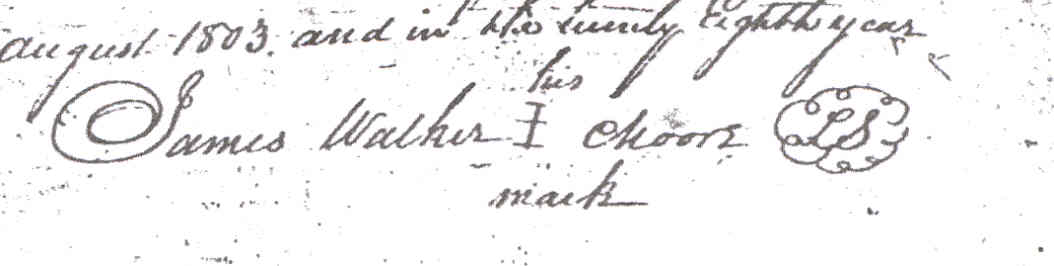 august 1803. and in the twenty Eighth year
his
James Walker I Moore LS
mark